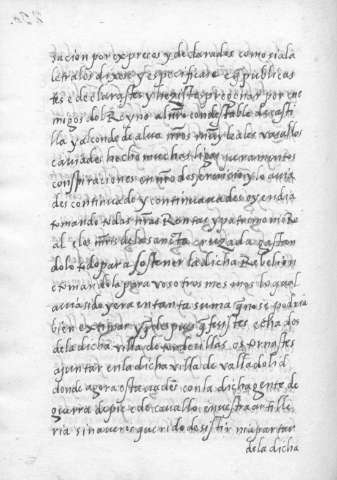 zacion por expreces y declaradas como si a la
letra los dixere y especificare e q̃ publicas
tes e declarastes y hezistes pregonar por ene
migos del Reyno al nr̃o condestable de casti
lla y al conde de alva nr̃os muy leales vasallos
e aviades hecho muchas ligas juramentos
conspiraciones en nr̃o deservicio y lo avia
des continuado y continuavades oy en dia
tomando todas nr̃as Rentas y patrimonio Re
al e los mr̃s de la sancta cruzada gastan
dolo todo para sostener la dicha Rebelion
e tomandola para vosotros mesmos lo qual
avia sido y era en tanta suma q̃ no se podria
bien extimar y q̃ despues q̃ fuistes echados
de la dicha villa de tordesillas os tornastes
a juntar en la dicha villa de valladolid
donde agora estavades con la dicha gente de
guerra de pie e de cavallo e nuestra artille
ria sin averos querido desistir ni apartar
de la dicha